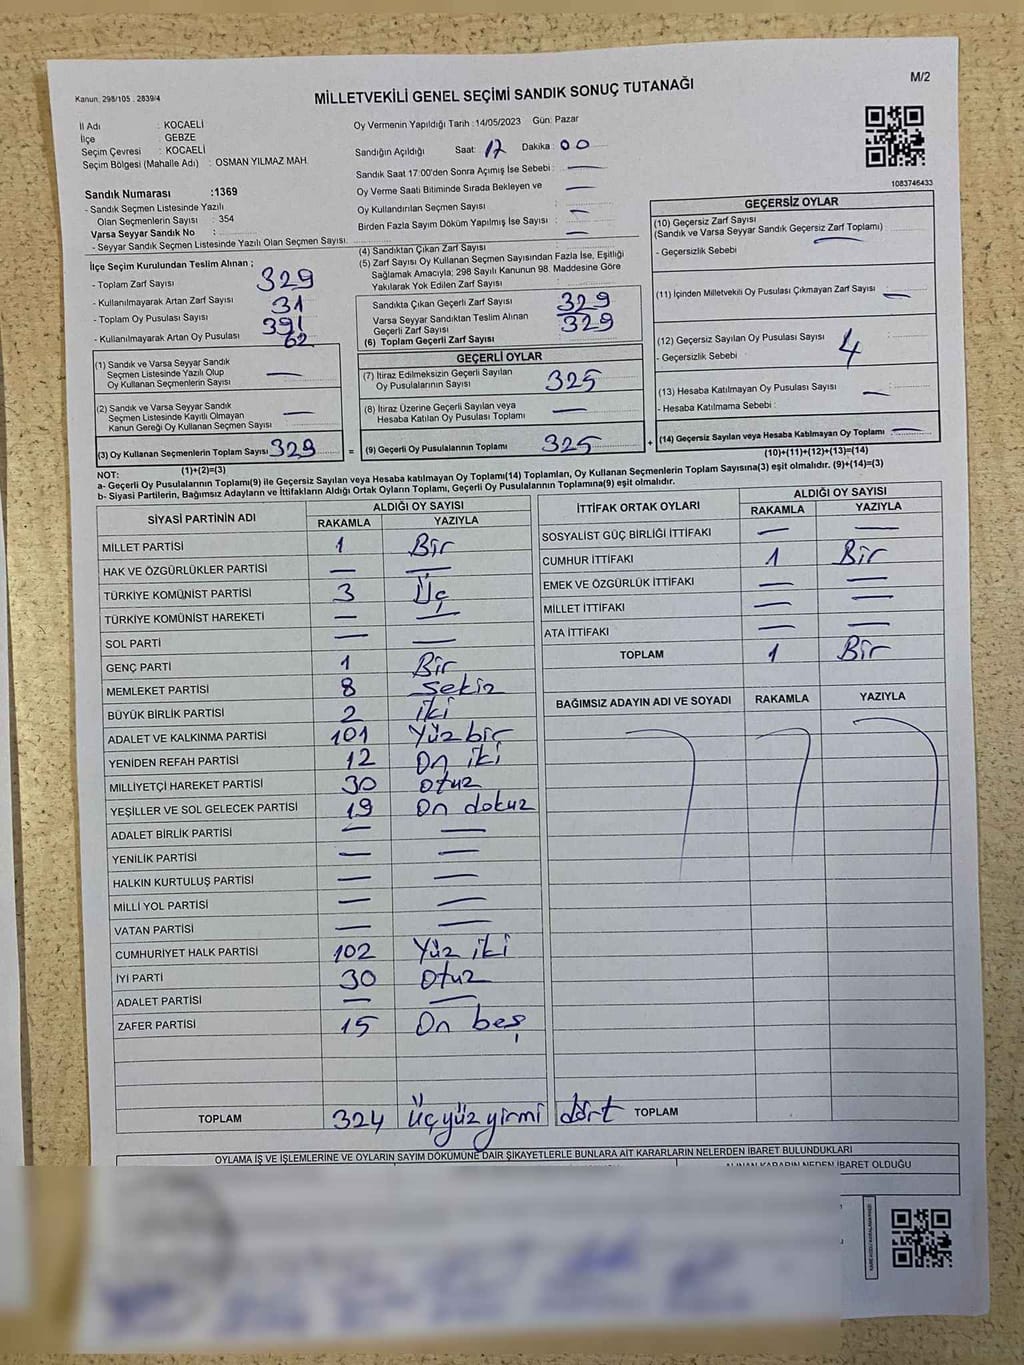 Kanun: 298/105 . 2839/4
MİLLETVEKİLİ GENEL SEÇİMİ SANDIK SONUÇ TUTANAĞI
M/2
İl Adı : KOCAELİ
İlçe : GEBZE
Seçim Çevresi : KOCAELİ
Seçim Bölgesi (Mahalle Adı) : OSMAN YILMAZ MAH.
Oy Vermenin Yapıldığı Tarih :14/05/2023 Gün: Pazar
Sandığın Açıldığı Saat: 17 Dakika: 00
Sandık Saat 17:00'den Sonra Açımış İse Sebebi : —
Oy Verme Saati Bitiminde Sırada Bekleyen ve —
Oy Kullandırılan Seçmen Sayısı : —
Birden Fazla Sayım Döküm Yapılmış İse Sayısı : —
1083746433
Sandık Numarası :1369
- Sandık Seçmen Listesinde Yazılı
Olan Seçmenlerin Sayısı : 354
Varsa Seyyar Sandık No :
- Seyyar Sandık Seçmen Listesinde Yazılı Olan Seçmen Sayısı:
İlçe Seçim Kurulundan Teslim Alınan ;
- Toplam Zarf Sayısı 329
- Kullanılmayarak Artan Zarf Sayısı 31
- Toplam Oy Pusulası Sayısı 391
- Kullanılmayarak Artan Oy Pusulası 62
(1) Sandık ve Varsa Seyyar Sandık
Seçmen Listesinde Yazılı Olup
Oy Kullanan Seçmenlerin Sayısı —
(2) Sandık ve Varsa Seyyar Sandık
Seçmen Listesinde Kayıtlı Olmayan
Kanun Gereği Oy Kullanan Seçmen Sayısı —
(3) Oy Kullanan Seçmenlerin Toplam Sayısı 329
(1)+(2)=(3)
(4) Sandıktan Çıkan Zarf Sayısı
(5) Zarf Sayısı Oy Kullanan Seçmen Sayısından Fazla İse, Eşitliği
Sağlamak Amacıyla; 298 Sayılı Kanunun 98. Maddesine Göre
Yakılarak Yok Edilen Zarf Sayısı
Sandıkta Çıkan Geçerli Zarf Sayısı 329
Varsa Seyyar Sandıktan Teslim Alınan
Geçerli Zarf Sayısı 329
(6) Toplam Geçerli Zarf Sayısı
GEÇERLİ OYLAR
(7) İtiraz Edilmeksizin Geçerli Sayılan
Oy Pusulalarının Sayısı 325
(8) İtiraz Üzerine Geçerli Sayılan veya
Hesaba Katılan Oy Pusulası Toplamı —
= (9) Geçerli Oy Pusulalarının Toplamı 325
GEÇERSİZ OYLAR
(10) Geçersiz Zarf Sayısı
(Sandık ve Varsa Seyyar Sandık Geçersiz Zarf Toplamı) —
- Geçersizlik Sebebi
(11) İçinden Milletvekili Oy Pusulası Çıkmayan Zarf Sayısı —
(12) Geçersiz Sayılan Oy Pusulası Sayısı 4
- Geçersizlik Sebebi
(13) Hesaba Katılmayan Oy Pusulası Sayısı —
- Hesaba Katılmama Sebebi :
+ (14) Geçersiz Sayılan veya Hesaba Katılmayan Oy Toplamı —
(10)+(11)+(12)+(13)=(14)
NOT:
a- Geçerli Oy Pusulalarının Toplamı(9) ile Geçersiz Sayılan veya Hesaba katılmayan Oy Toplamı(14) Toplamları, Oy Kullanan Seçmenlerin Toplam Sayısına(3) eşit olmalıdır. (9)+(14)=(3)
b- Siyasi Partilerin, Bağımsız Adayların ve İttifakların Aldığı Ortak Oyların Toplamı, Geçerli Oy Pusulalarının Toplamına(9) eşit olmalıdır.
SİYASİ PARTİNİN ADI ALDIĞI OY SAYISI
RAKAMLA YAZIYLA
MİLLET PARTİSİ 1 Bir
HAK VE ÖZGÜRLÜKLER PARTİSİ — —
TÜRKİYE KOMÜNİST PARTİSİ 3 Üç
TÜRKİYE KOMÜNİST HAREKETİ — —
SOL PARTİ — —
GENÇ PARTİ 1 Bir
MEMLEKET PARTİSİ 8 Sekiz
BÜYÜK BİRLİK PARTİSİ 2 İki
ADALET VE KALKINMA PARTİSİ 101 Yüz bir
YENİDEN REFAH PARTİSİ 12 On iki
MİLLİYETÇİ HAREKET PARTİSİ 30 otuz
YEŞİLLER VE SOL GELECEK PARTİSİ 19 On dokuz
ADALET BİRLİK PARTİSİ — —
YENİLİK PARTİSİ — —
HALKIN KURTULUŞ PARTİSİ — —
MİLLİ YOL PARTİSİ — —
VATAN PARTİSİ — —
CUMHURİYET HALK PARTİSİ 102 Yüz iki
İYİ PARTİ 30 Otuz
ADALET PARTİSİ — —
ZAFER PARTİSİ 15 On beş
TOPLAM 324 Üçyüz yirmi dört
İTTİFAK ORTAK OYLARI ALDIĞI OY SAYISI
RAKAMLA YAZIYLA
SOSYALİST GÜÇ BİRLİĞİ İTTİFAKI — —
CUMHUR İTTİFAKI 1 Bir
EMEK VE ÖZGÜRLÜK İTTİFAKI — —
MİLLET İTTİFAKI — —
ATA İTTİFAKI — —
TOPLAM 1 Bir
BAĞIMSIZ ADAYIN ADI VE SOYADI RAKAMLA YAZIYLA
TOPLAM
OYLAMA İŞ VE İŞLEMLERİNE VE OYLARIN SAYIM DÖKÜMÜNE DAİR ŞİKAYETLERLE BUNLARA AİT KARARLARIN NELERDEN İBARET BULUNDUKLARI
ALINAN KARARIN NEDEN İBARET OLDUĞU